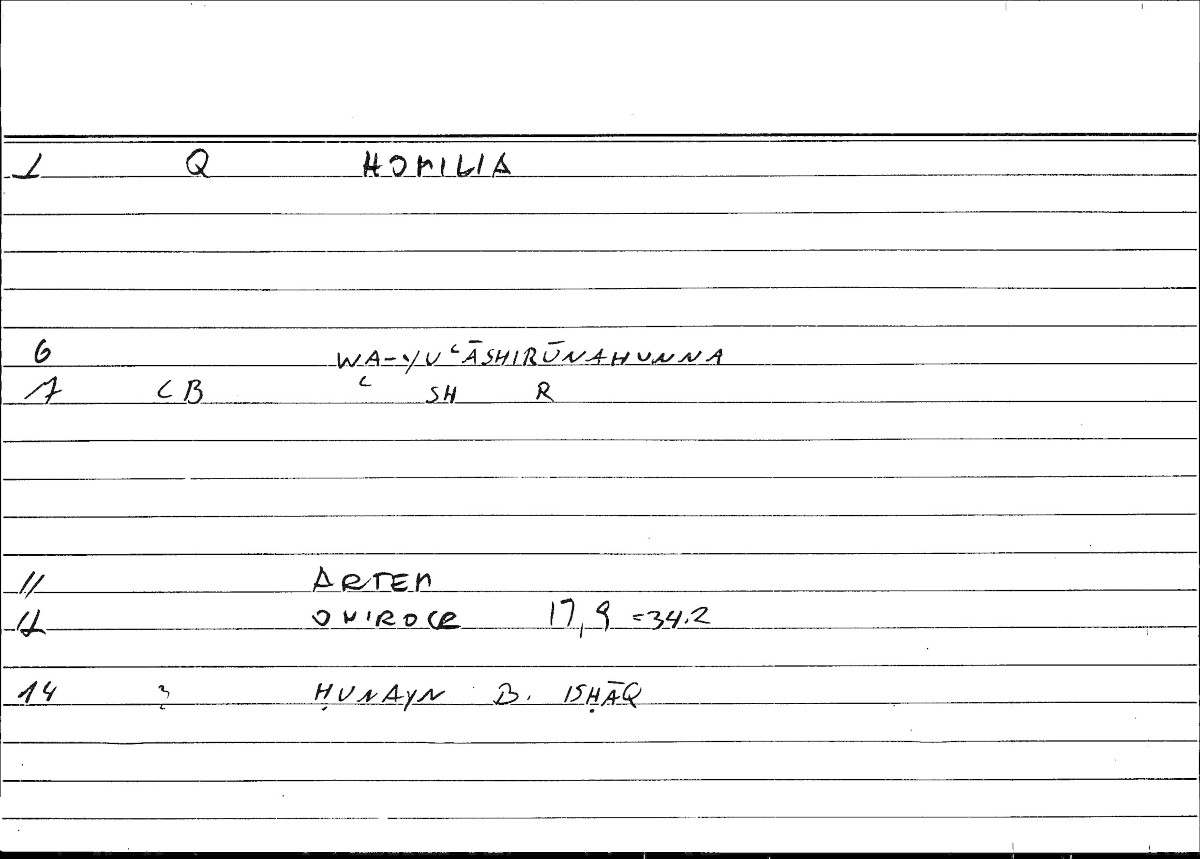 1 Q HOMILIA
6 WA-YUʿĀSHIRŪNAHUNNA
7 CB ʿ SH R
11 ARTEM
12 ONIROCR 17,9 =34.2
14 ḤUNAYN B. ISḤĀQ